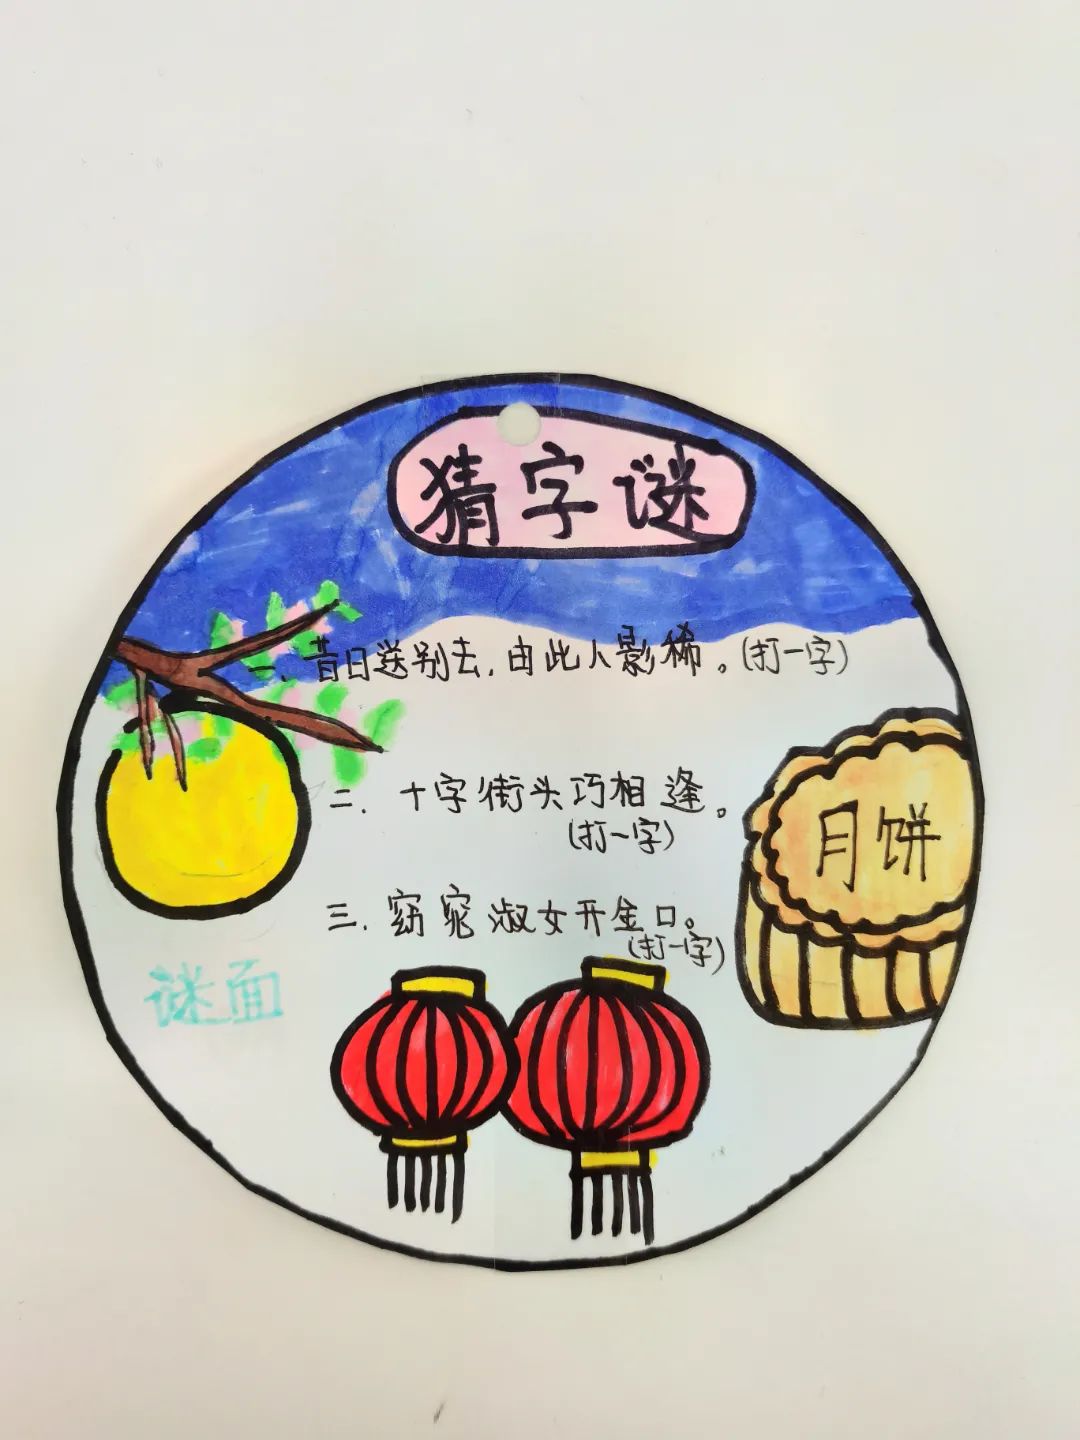 猜字谜
一、昔日送别去,由此人影稀。(打一字)
二、十字街头巧相逢。
(打一字)
月饼
三、窈窕淑女开金口。
(打一字)
谜面